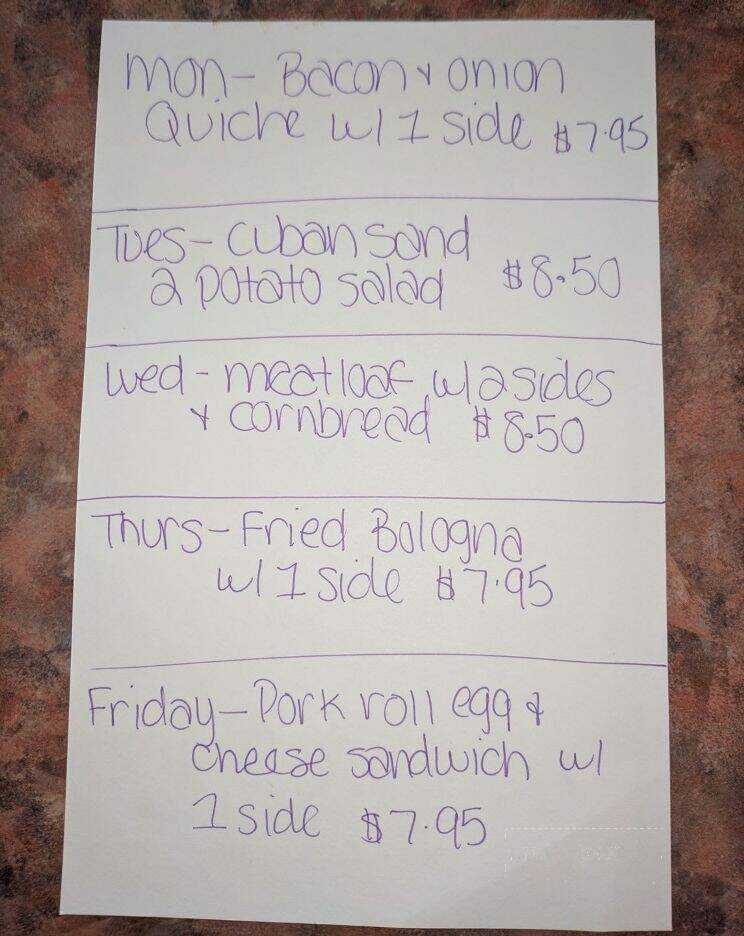 Mon- Bacon & onion
Quiche w/ 1 side $7.95
Tues- Cuban sand
2 potato salad $8.50
Wed- meatloaf w/ 2 sides
& cornbread $8.50
Thurs- Fried Bologna
w/ 1 side $7.95
Friday- Pork roll egg &
cheese sandwich w/
1 side $7.95